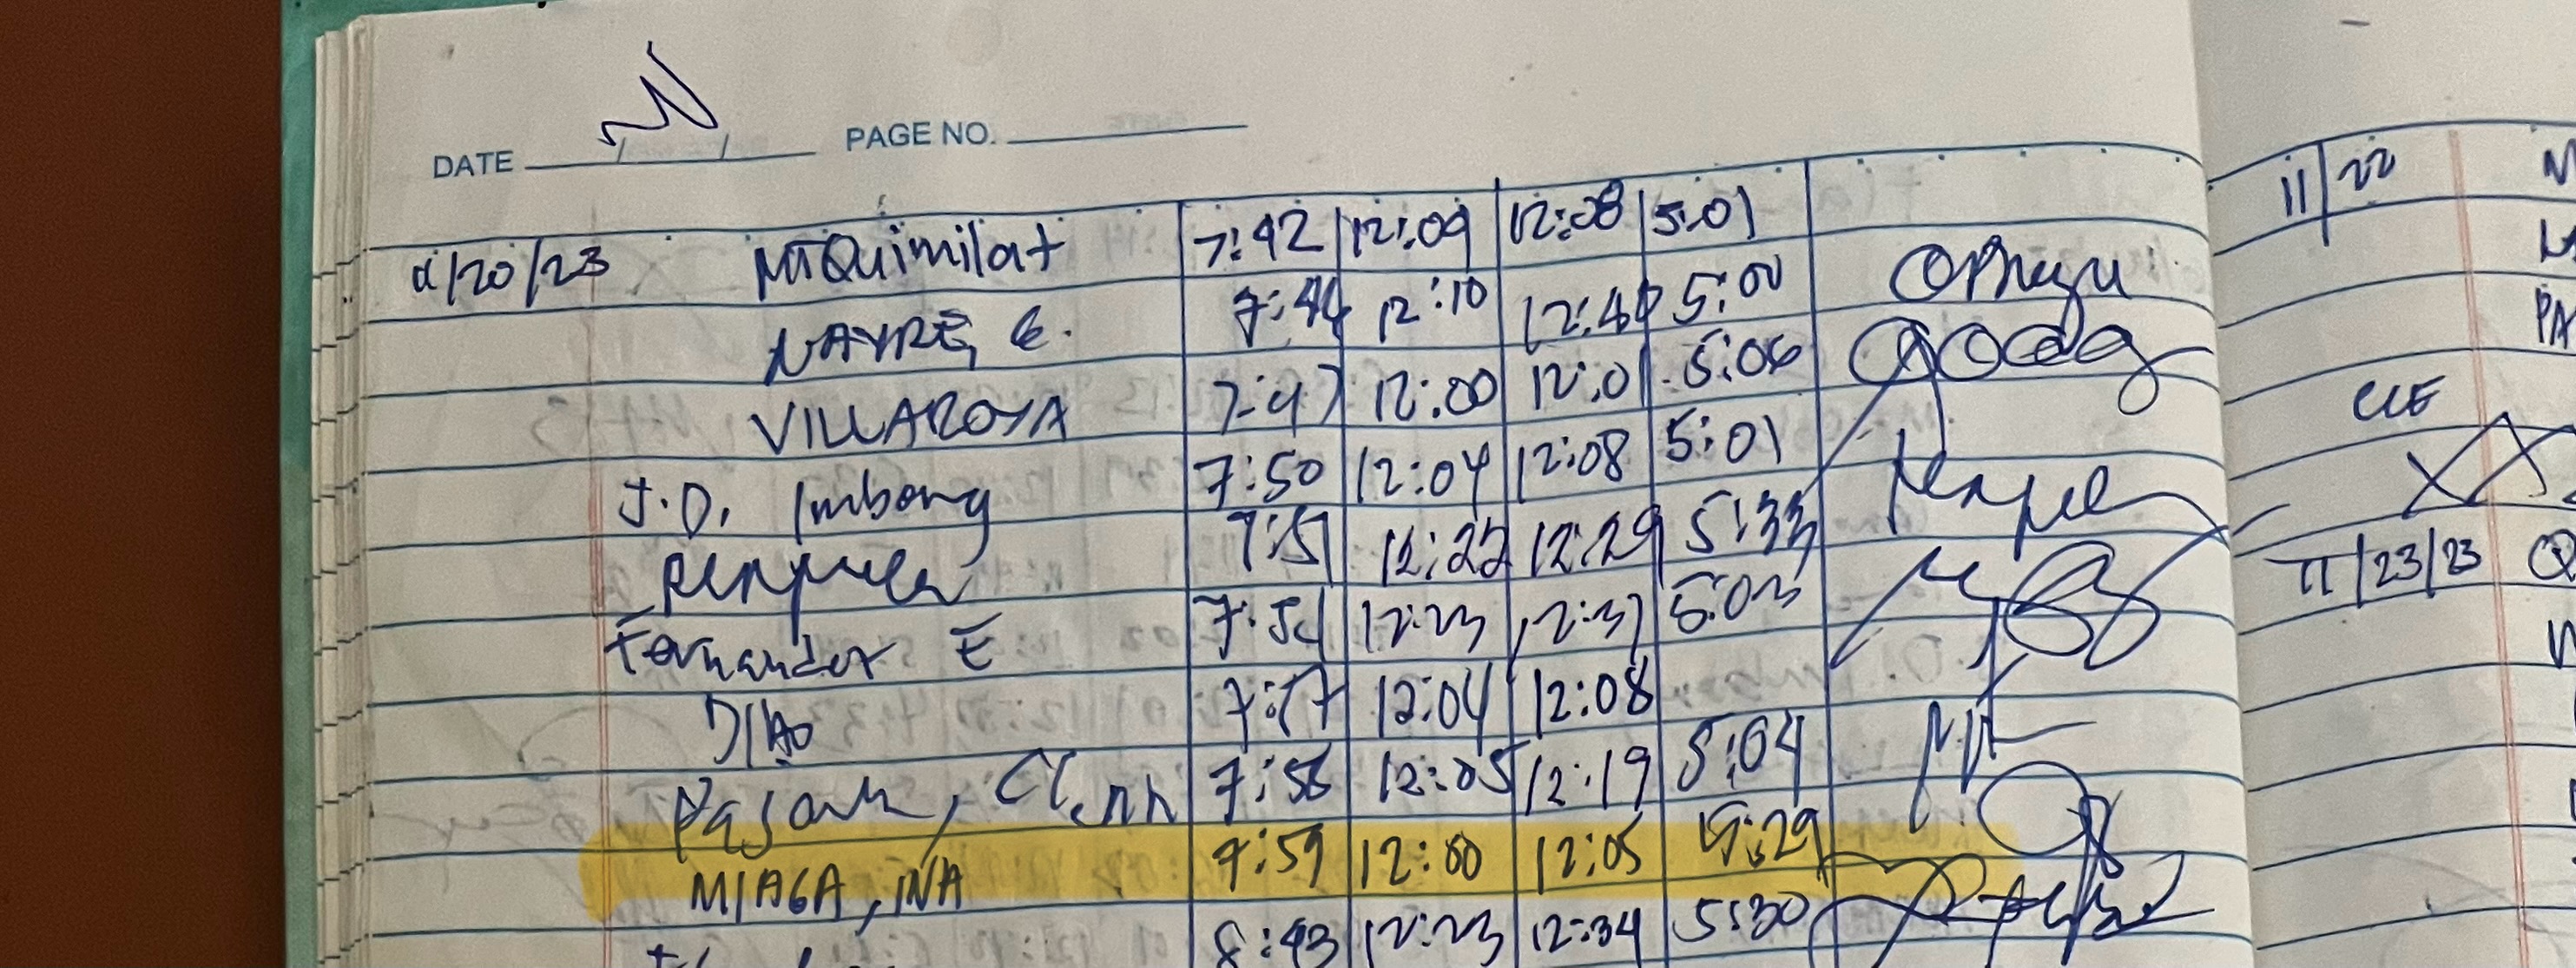 DATE / / PAGE NO.
11/20/23 MTQuimilat 7:42 12:09 12:08 5:01
NAYRE, E. 7:44 12:10 12:40 5:00
VILLAROYA 7:47 12:00 12:01 5:06
J.D. Imbong 7:50 12:04 12:08 5:01
7:51 12:22 12:29 5:33
Fernandez E 7:54 12:23 12:37 5:03
7:57 12:04 12:08
7:58 12:05 12:19 5:04
MIAGA, INA 7:59 12:00 12:05 5:29
8:43 12:23 12:34 5:30
11/22
PA
11/23/23